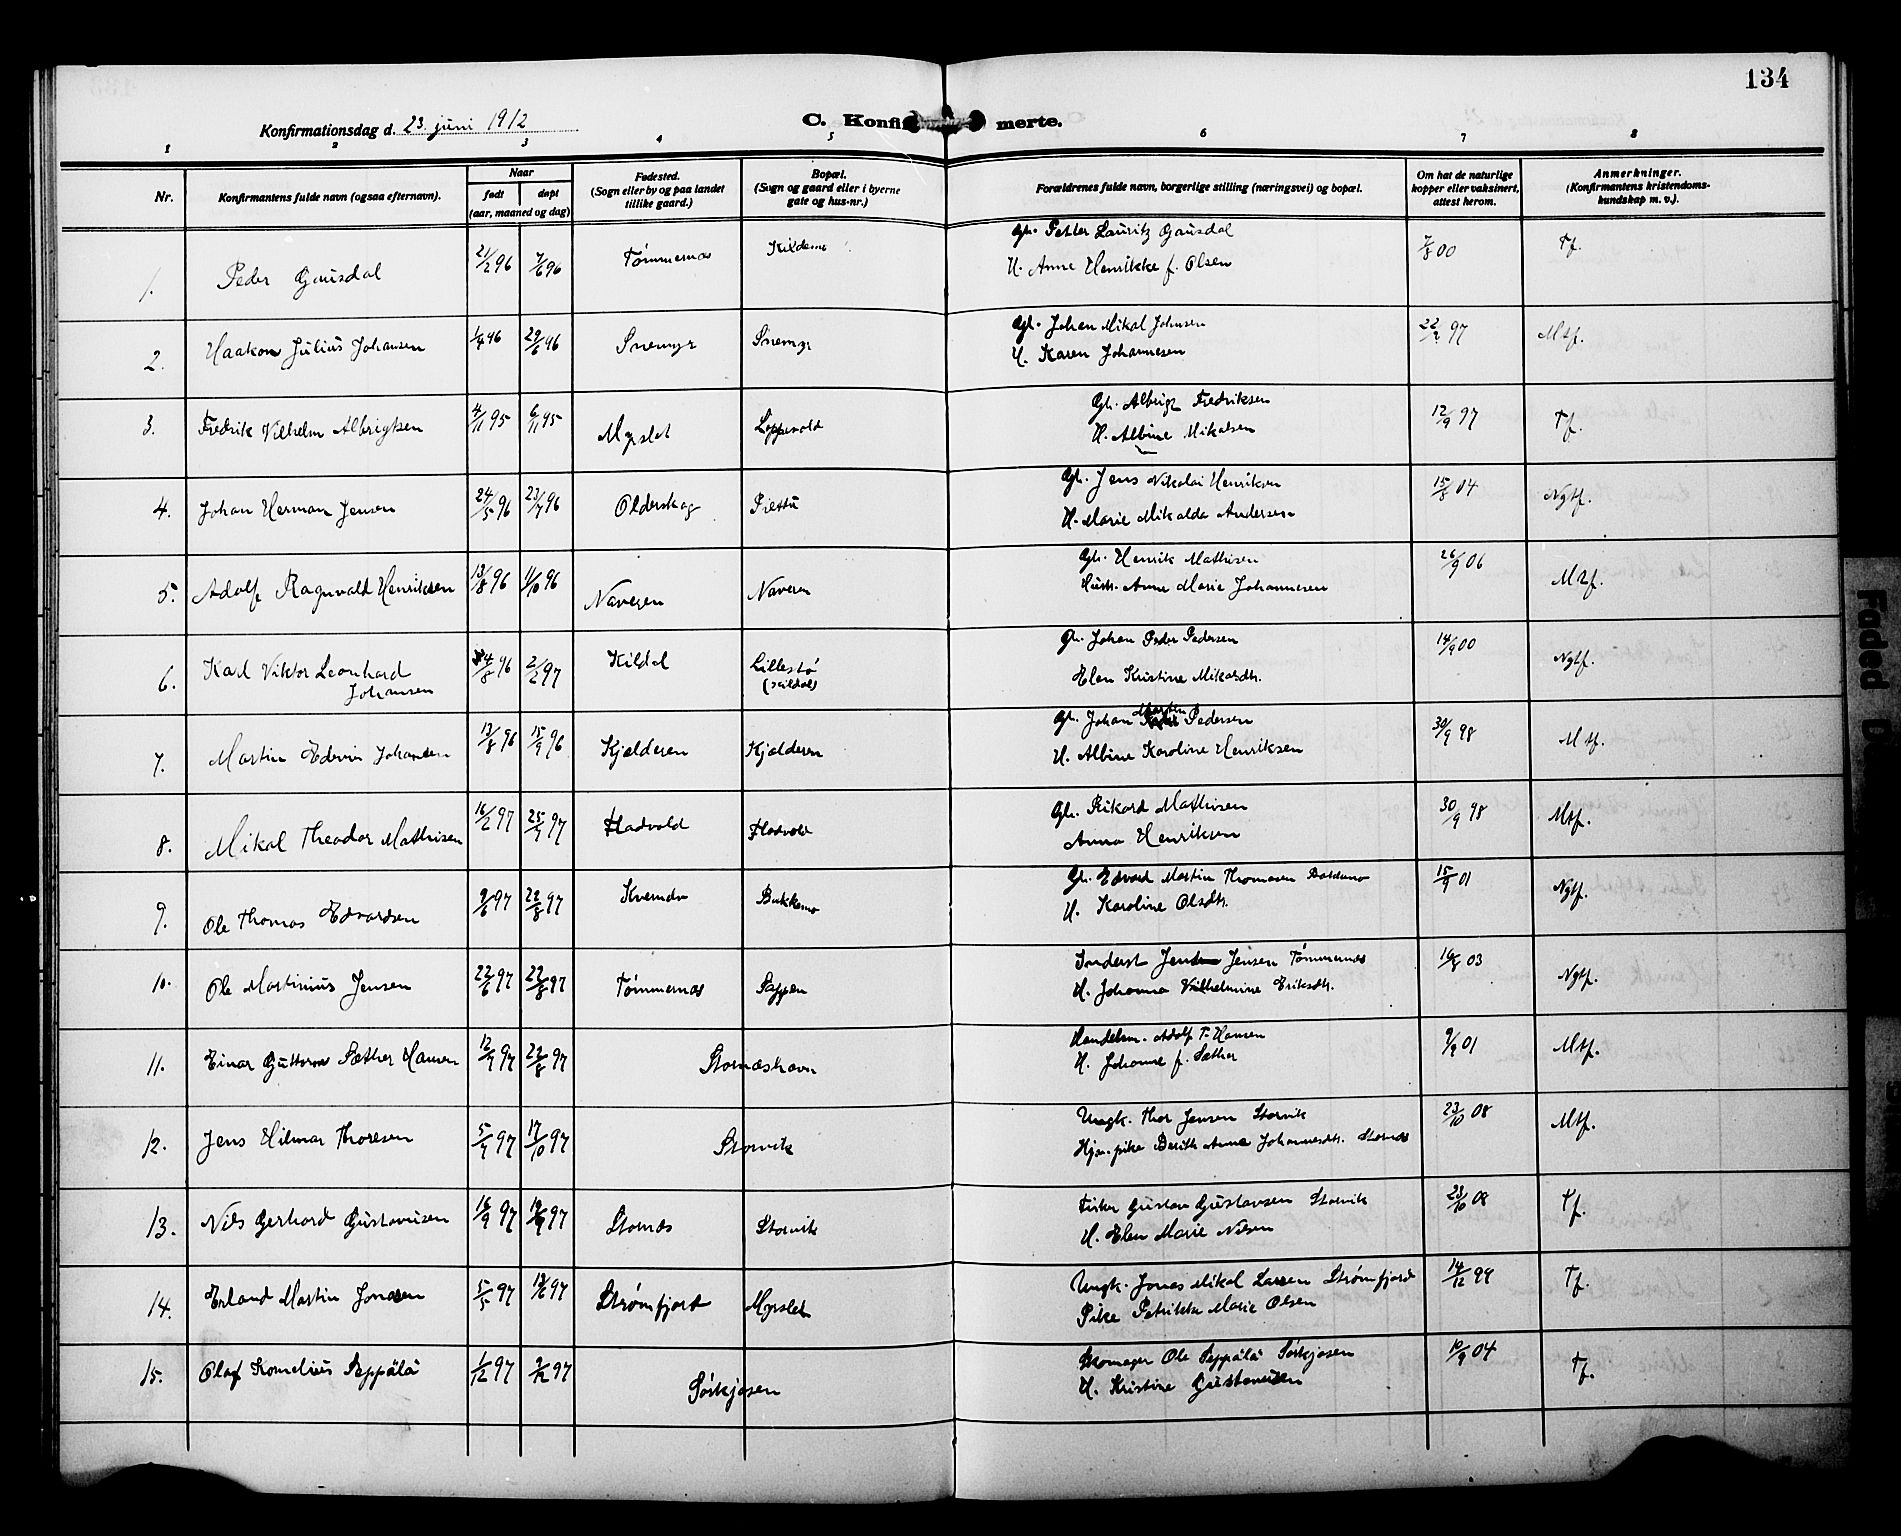 134
Konfirmationsdag d. 23. juni 1912
C. Konfirmerte.
1 2 3 4 5 6 7 8
Nr. | Konfirmantens fulde navn (ogsaa efternavn). | Naar født døpt (aar, maaned og dag) | Fødested. (Sogn eller by og paa landet tillike gaard.) | Bopæl. (Sogn og gaard eller i byerne gate og hus-nr.) | Forældrenes fulde navn, borgerlige stilling (næringsvei) og bopæl. | Om hat de naturlige kopper eller vaksinert, attest herom. | Anmerkninger. (Konfirmantens kristendoms-kundskap m. v.).
1. Peder Gausdal 21/2 96 7/6 96 Tømmernæs Kildemo Gh. Petter Lauritz Gausdal 7/8 00 Tf.
H. Anne Henrikke f. Olsen
2. Haakon Julius Johansen 96 29/6 96 Snemyr Snemyr Gh. Johan Mikal Johnsen 22/2 97 Mtf.
H. Karen Johannesen
3. Fredrik Vilhelm Albrigtsen 4/11 95 6/11 95 Myrslet Loppevold Gh. Albrigt Fredriksen 12/9 97 Tf.
H. Albine Mikalsen
4. Johan Herman Jensen 24/5 96 23/7 96 Olderskog Gh. Jens Nikolai Henriksen 15/8 04 Ngtf.
H. Marie Mikalda Andersen
5. Adolf Ragnvald Henriksen 13/8 96 11/10 96 Naveren Naveren Gh. Henrik Mathisen 26/9 06 Mtf.
Hustr. Anne Marie Johannesen
6. Karl Viktor Leonhard 96 2/2 97 Kildal Lillestø Gh. Johan Peder Pedersen 14/9 00 Ngtf.
Johansen (Kildal) Elen Kristine Mikalsdtr.
7. Martin Edvin Johansen 13/8 96 15/9 96 Kjelderen Kjelderen Gh. Johan Morten Pedersen 30/9 98 Mtf.
H. Albine Karoline Henriksen
8. Mikal Theodor Mathisen 16/2 97 25/7 97 Fladvold Fladvold Gh. Rikard Mathisen 30/9 98 Mtf.
Anna Henriksen
9. Ole Thomas Edvardsen 9/6 97 22/8 97 Kvernmo Bakkemo Gh. Edvard Martin Thomasen 15/9 01 Ngtf.
H. Karoline Olsdtr.
10. Ole Martinius Jensen 22/6 97 22/8 97 Tømmernæs Sappen Inderst Jens Jensen Tømmernæs 16/8 03 Ngtf.
H. Johanna Vilhelmine Eriksdtr.
11. Einar Guttorm Sæther Hansen 12/7 97 22/8 97 Storneshavn Handelsm. Adolf T. Hansen 9/9 01 Mtf.
H. Johanne f. Sæther
12. Jens Hilmar Thoresen 5/7 97 17/10 97 Storvik Ungk. Thor Jensen Storvik 23/10 08 Mtf.
Pike Berith Anne Johannesdtr. Stornes
13. Nils Gerhard Gustavsen 16/9 97 97 Stornæs Storvik Fisker Gustav Gustavsen Storvik 23/10 08 Tf.
H. Elen Marie Nilsen
14. Erland Martin Jonasen 5/5 97 97 Strømfjord Myrslet Ungk. Jonas Mikal Larsen Strømfjord 14/12 99 Tf.
Pike Petrikke Marie Olsen
15. Olaf Kornelius Seppälä 1/12 97 97 Sørkjosen Skomager Ole Seppälä Sørkjosen 10/9 04 Tf.
H. Kristine Gustavsen
Faded